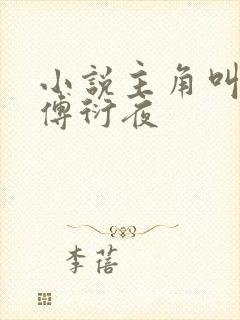 小說主角叫
傅衍夜
李蓓